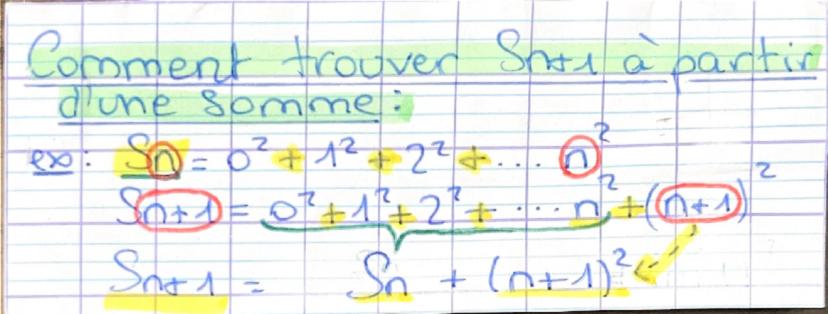 Comment trouver Sn+1 à partir
d'une somme :
ex : Sn = 0² + 1² + 2² + ... n²
Sn+1 = 0² + 1² + 2² + ... n² + (n+1)²
Sn+1 = Sn + (n+1)²